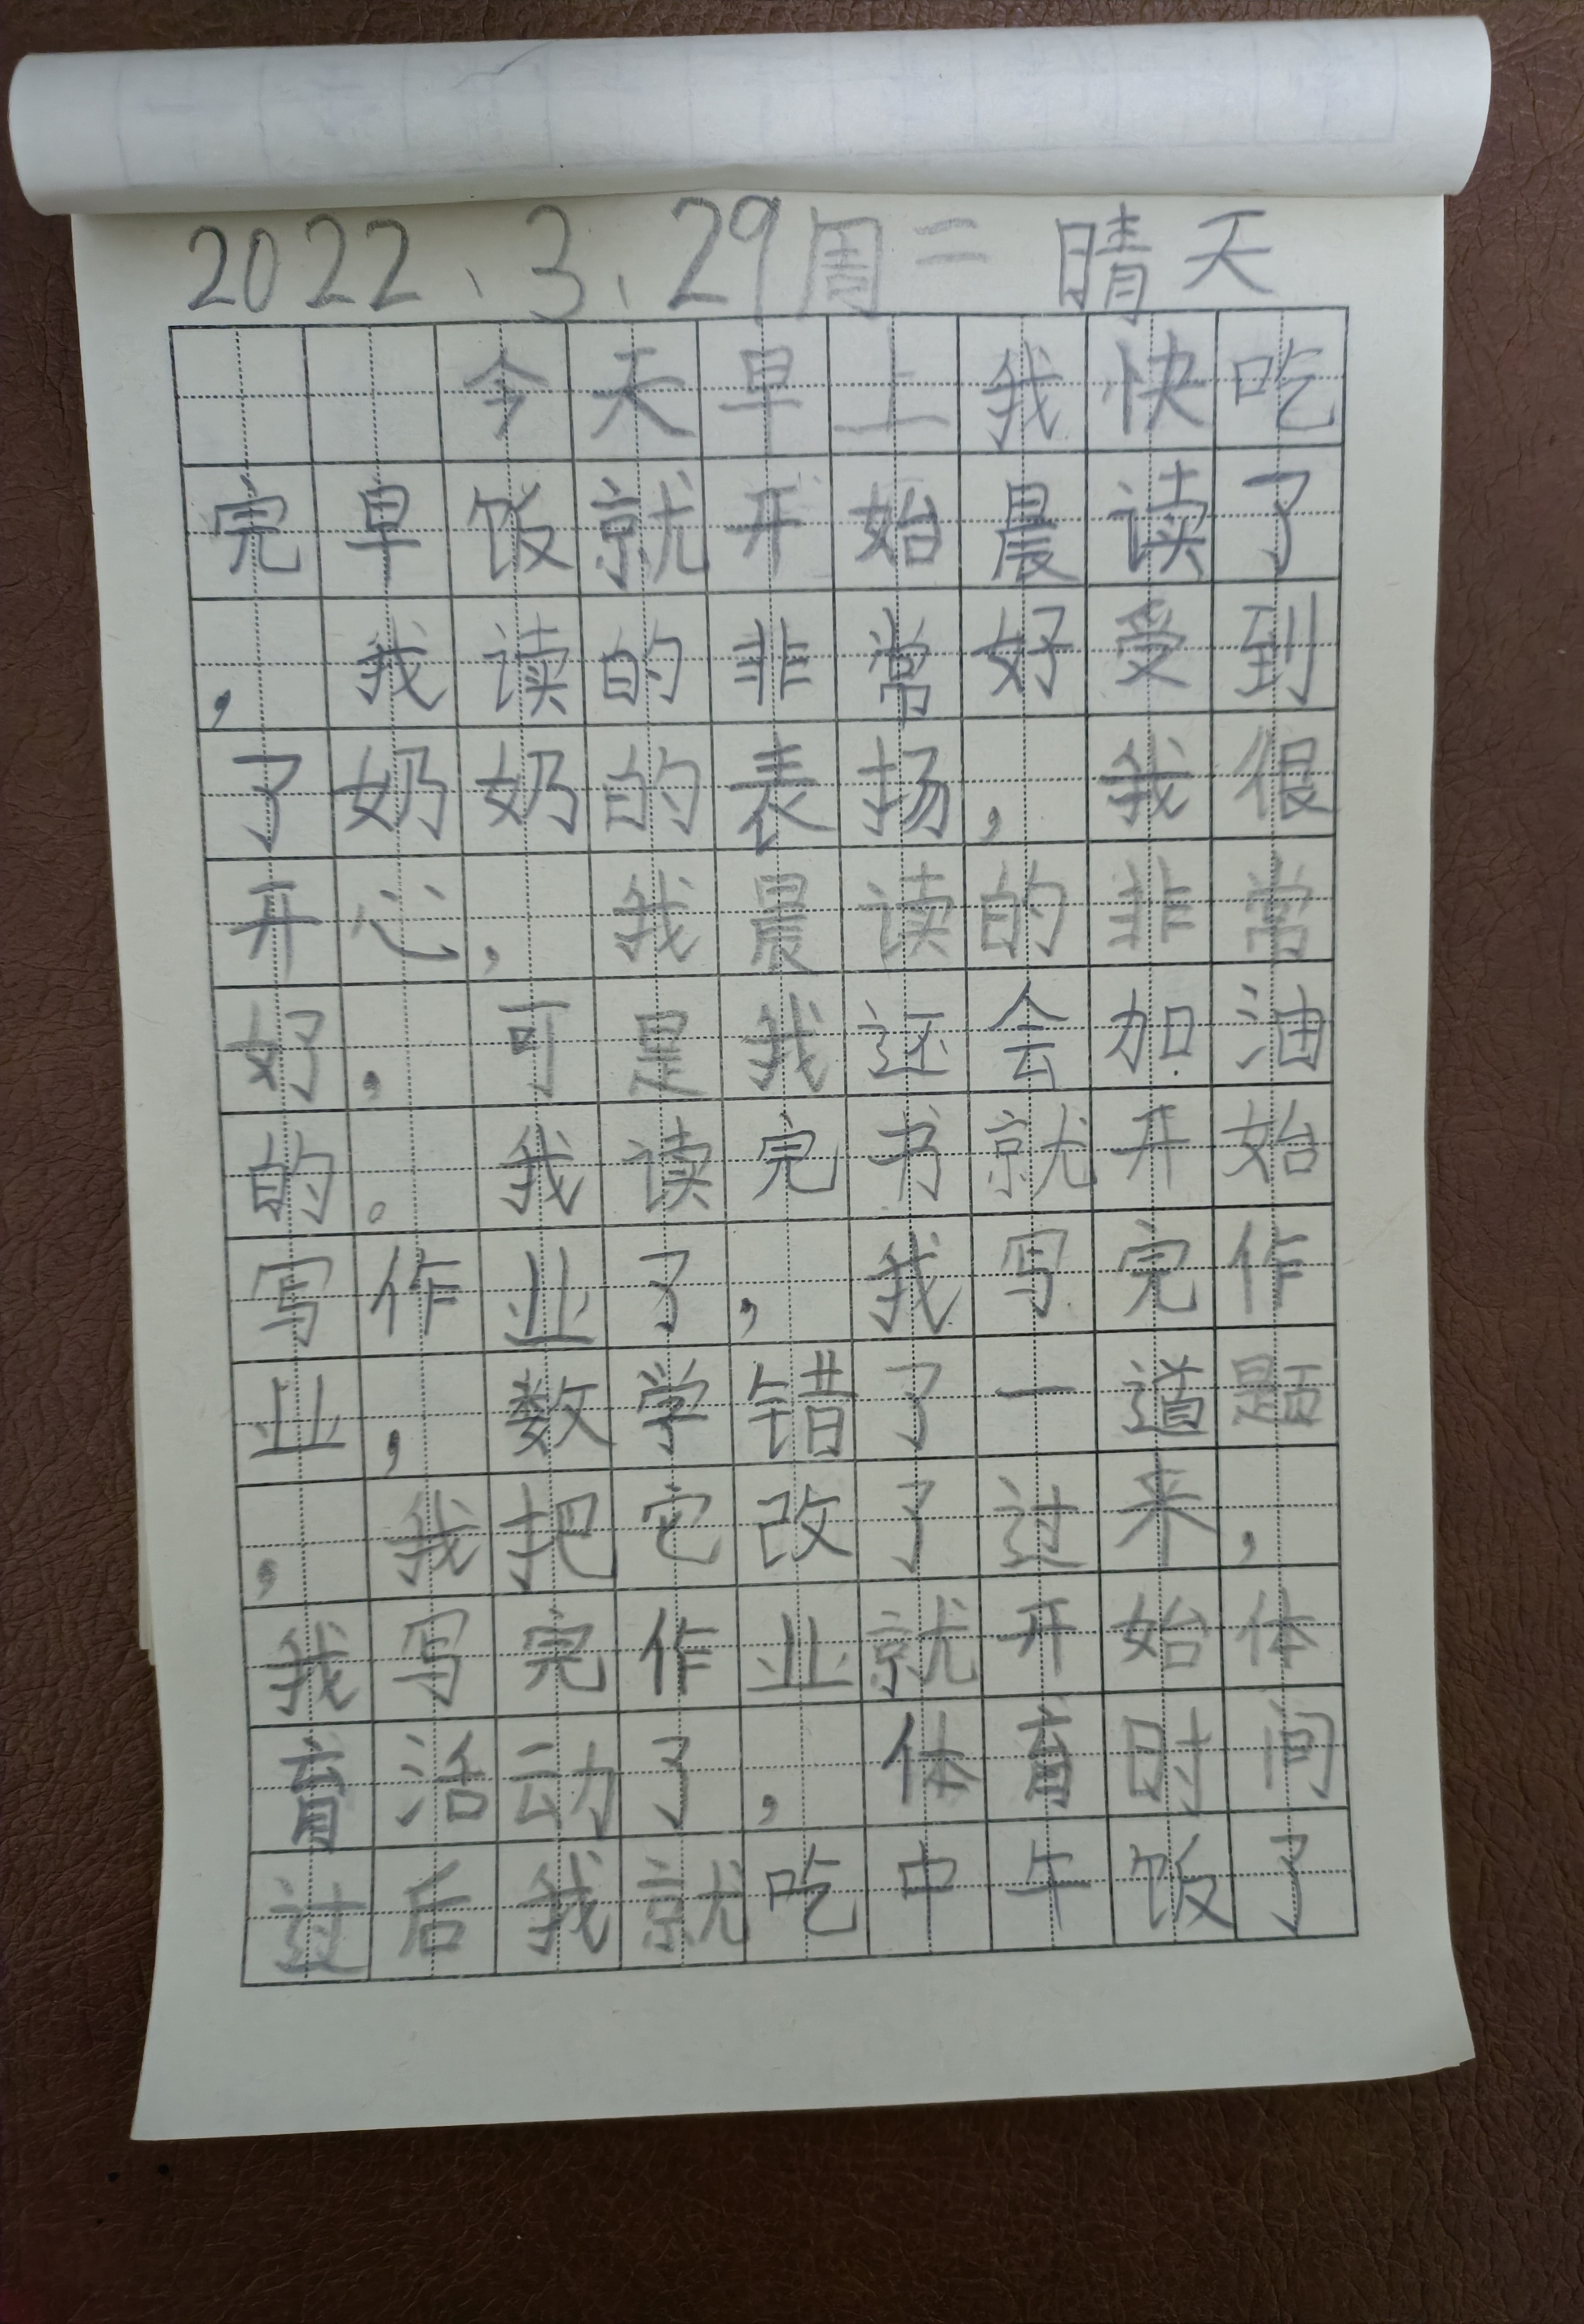 2022、3、29周二 晴天
今天早上我快吃
完早饭就开始晨读了
，我读的非常好受到
了奶奶的表扬，我很
开心，我晨读的非常
好，可是我还会加油
的。我读完书就开始
写作业了，我写完作
业，数学错了一道题
，我把它改了过来，
我写完作业就开始体
育活动了，体育时间
过后我就吃中午饭了